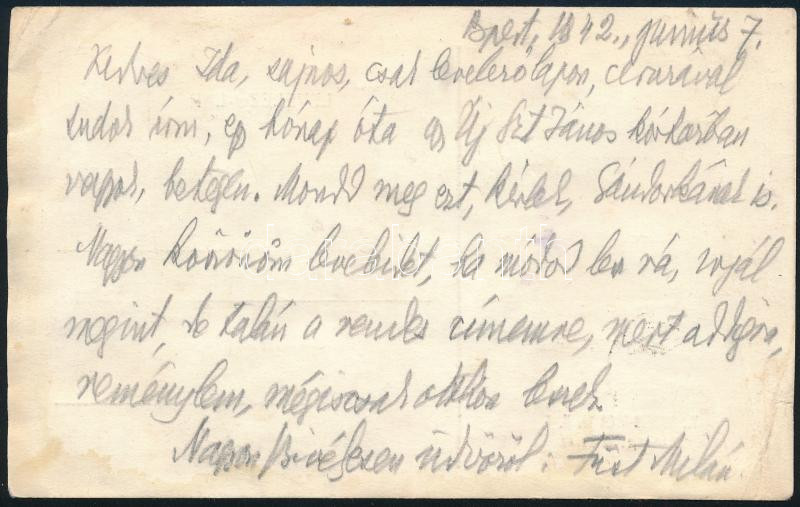 Bpest, 1942., junius 7.
Kedves Ida, sajnos, csak levelezőlapon, ceruzával
tudok írni, egy hónap óta az Új Szt János kórházban
vagyok, betegen. Mondd meg ezt, kérlek, Sándorkának is.
Nagyon köszönöm levelüket, ha módod lesz rá, írjál
megint, de talán a rendes címemre, mert addigra,
reménylem, mégiscsak otthon leszek.
Nagyon szivélyesen üdvözöl: Füst Milán